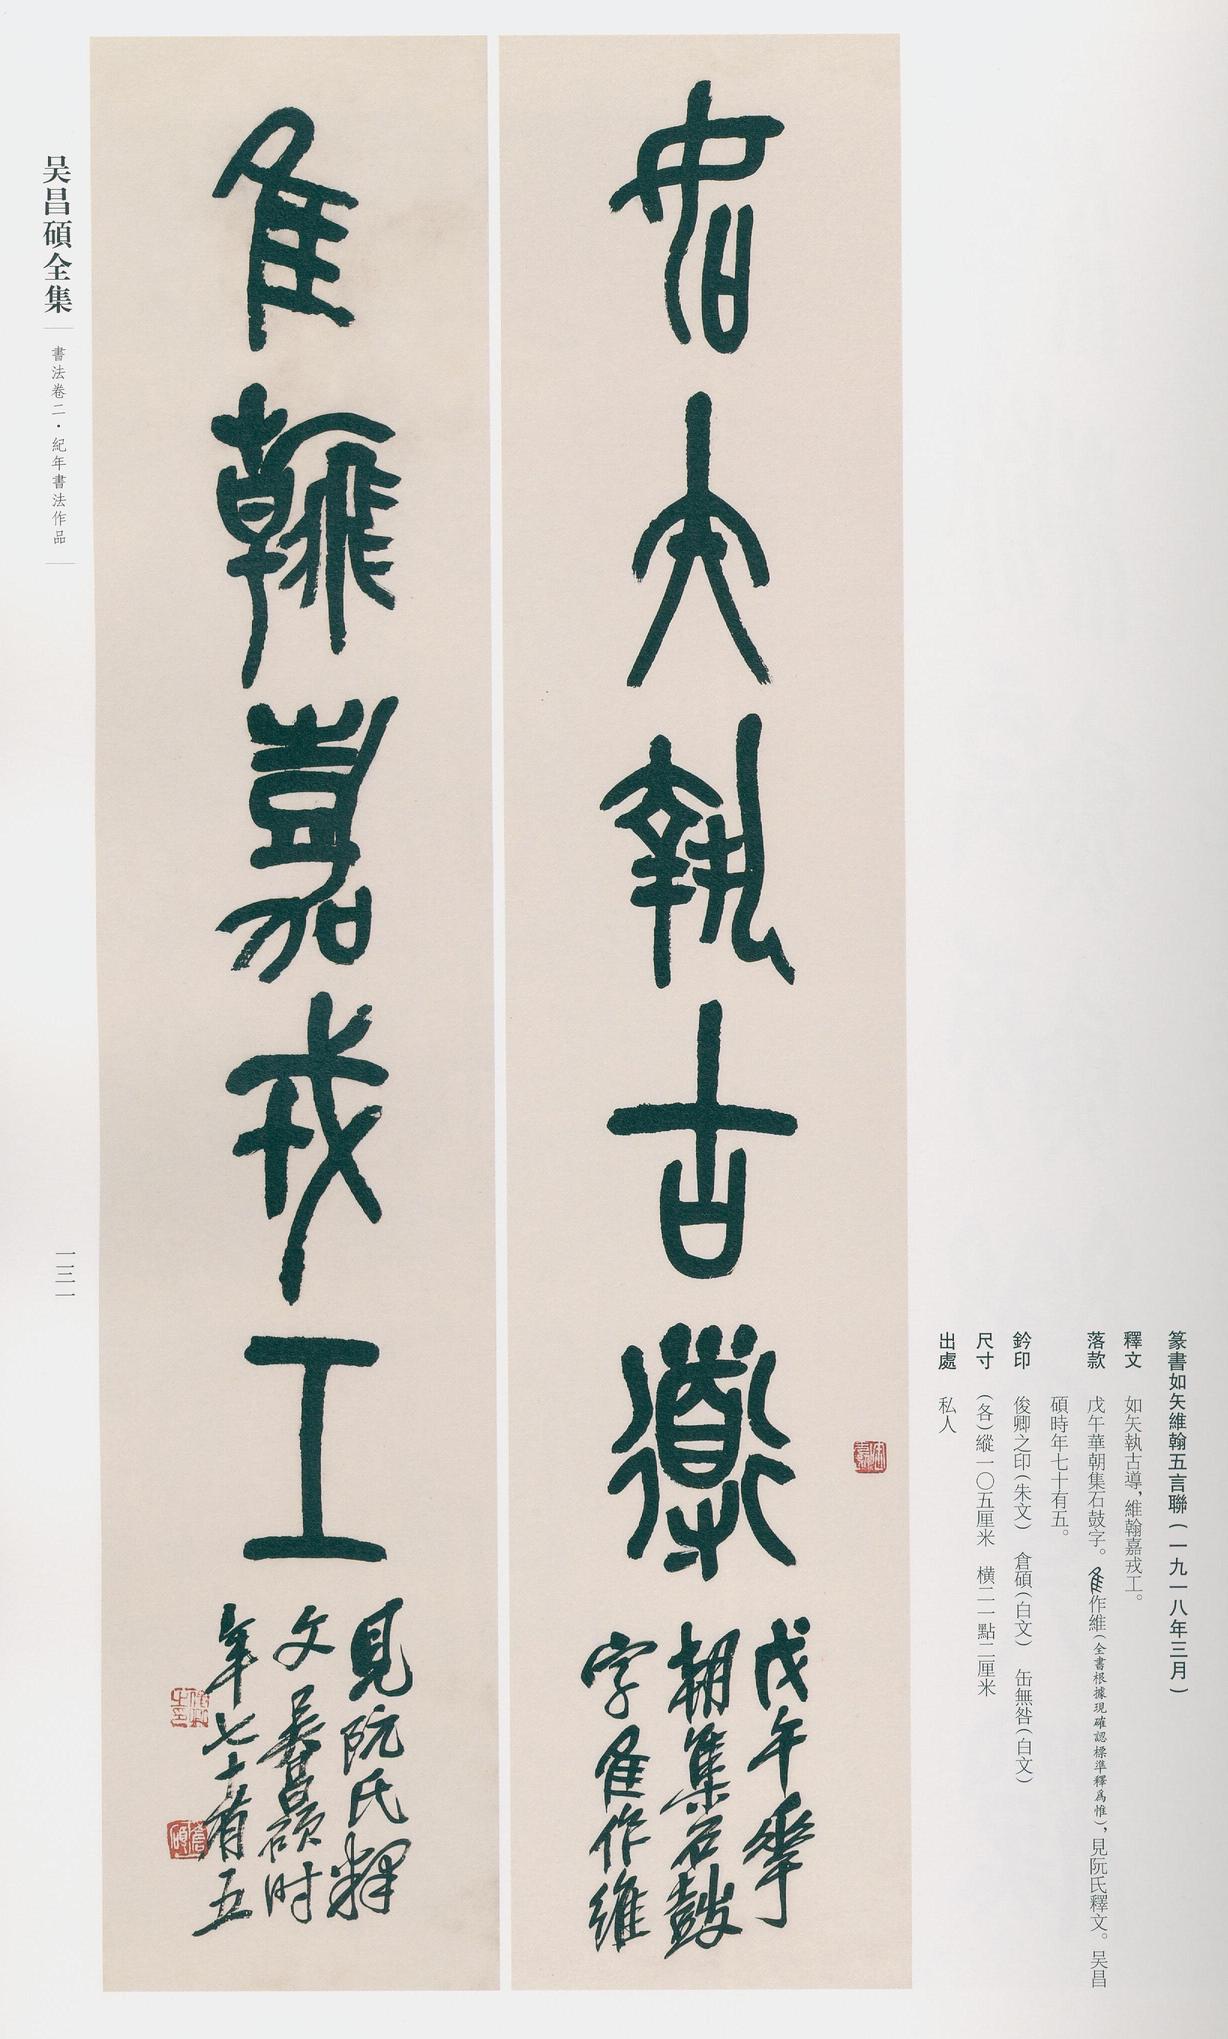 篆書如矢維翰五言聯（一九一八年三月）
釋文　如矢執古導，維翰嘉戎工。
落款　戊午華朝集石鼓字。隹作維（全書根據現確認標準釋爲惟），見阮氏釋文。吴昌
碩時年七十有五。
鈐印　俊卿之印（朱文）　倉碩（白文）　缶無咎（白文）
尺寸　（各）縱一〇五厘米　橫二一點二厘米
出處　私人
如矢執古導
戊午華
朝集石鼓
字隹作維
隹翰嘉戎工
見阮氏釋
文　吴昌碩时
年七十有五
俊卿之印
倉碩
吴昌碩全集
書法卷二・紀年書法作品
一三一